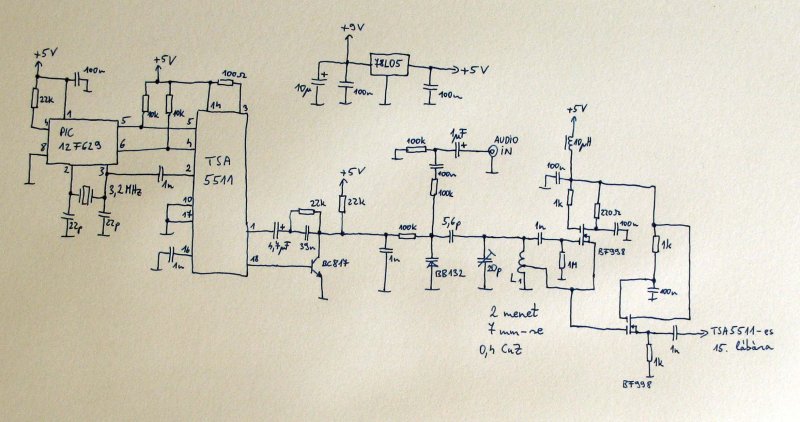 +9V
+5V
100n
+5V
100Ω
78L05
+5V
10µ
100n
100n
22k
10k
10k
14
3
1
4
PIC
12F629
8
5
6
2
3
5
4
TSA
5511
2
3,2MHz
22p
22p
1n
10
17
16
1n
1
18
4,7µF
22k
39n
BC817
+5V
22k
1n
100k
100k
1µF
AUDIO
IN
100n
100k
5,6p
BB132
20p
L1
2 menet
7 mm-re
0,4 CuZ
1n
1M
+5V
10µH
100n
1k
220Ω
100n
BF998
1k
100n
1k
BF998
1n
TSA5511-es
15. lábára